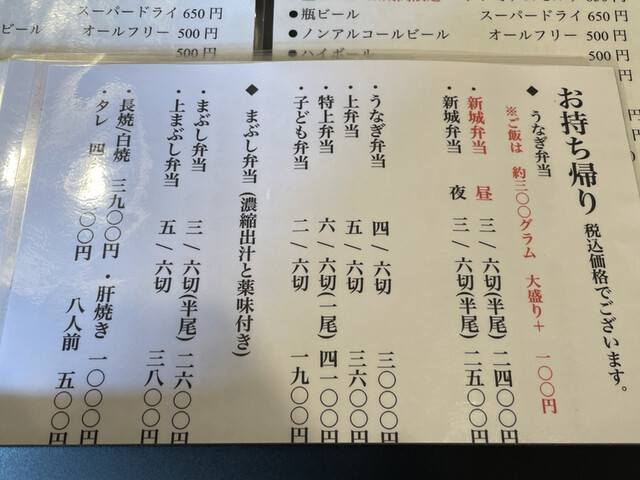 スーパードライ 650円
ビール オールフリー 500円
500円
●瓶ビール スーパードライ 650円
●ノンアルコールビール オールフリー 500円
●ハイボール 500円
お持ち帰り 税込価格でございます。
◆ うなぎ弁当
※ご飯は 約三〇〇グラム 大盛り＋ 一〇〇円
・新城弁当 昼 三/六切(半尾) 二四〇〇円
・新城弁当 夜 三/六切(半尾) 二五〇〇円
・うなぎ弁当 四/六切 三〇〇〇円
・上弁当 五/六切 三六〇〇円
・特上弁当 六/六切(一尾) 四一〇〇円
・子ども弁当 二/六切 一九〇〇円
◆ まぶし弁当 (濃縮出汁と薬味付き)
・まぶし弁当 三/六切(半尾) 二六〇〇円
・上まぶし弁当 五/六切 三八〇〇円
・長焼/白焼 三九〇〇円 ・肝焼き 一〇〇〇円
・タレ 四〇〇円 八人前 五〇〇円